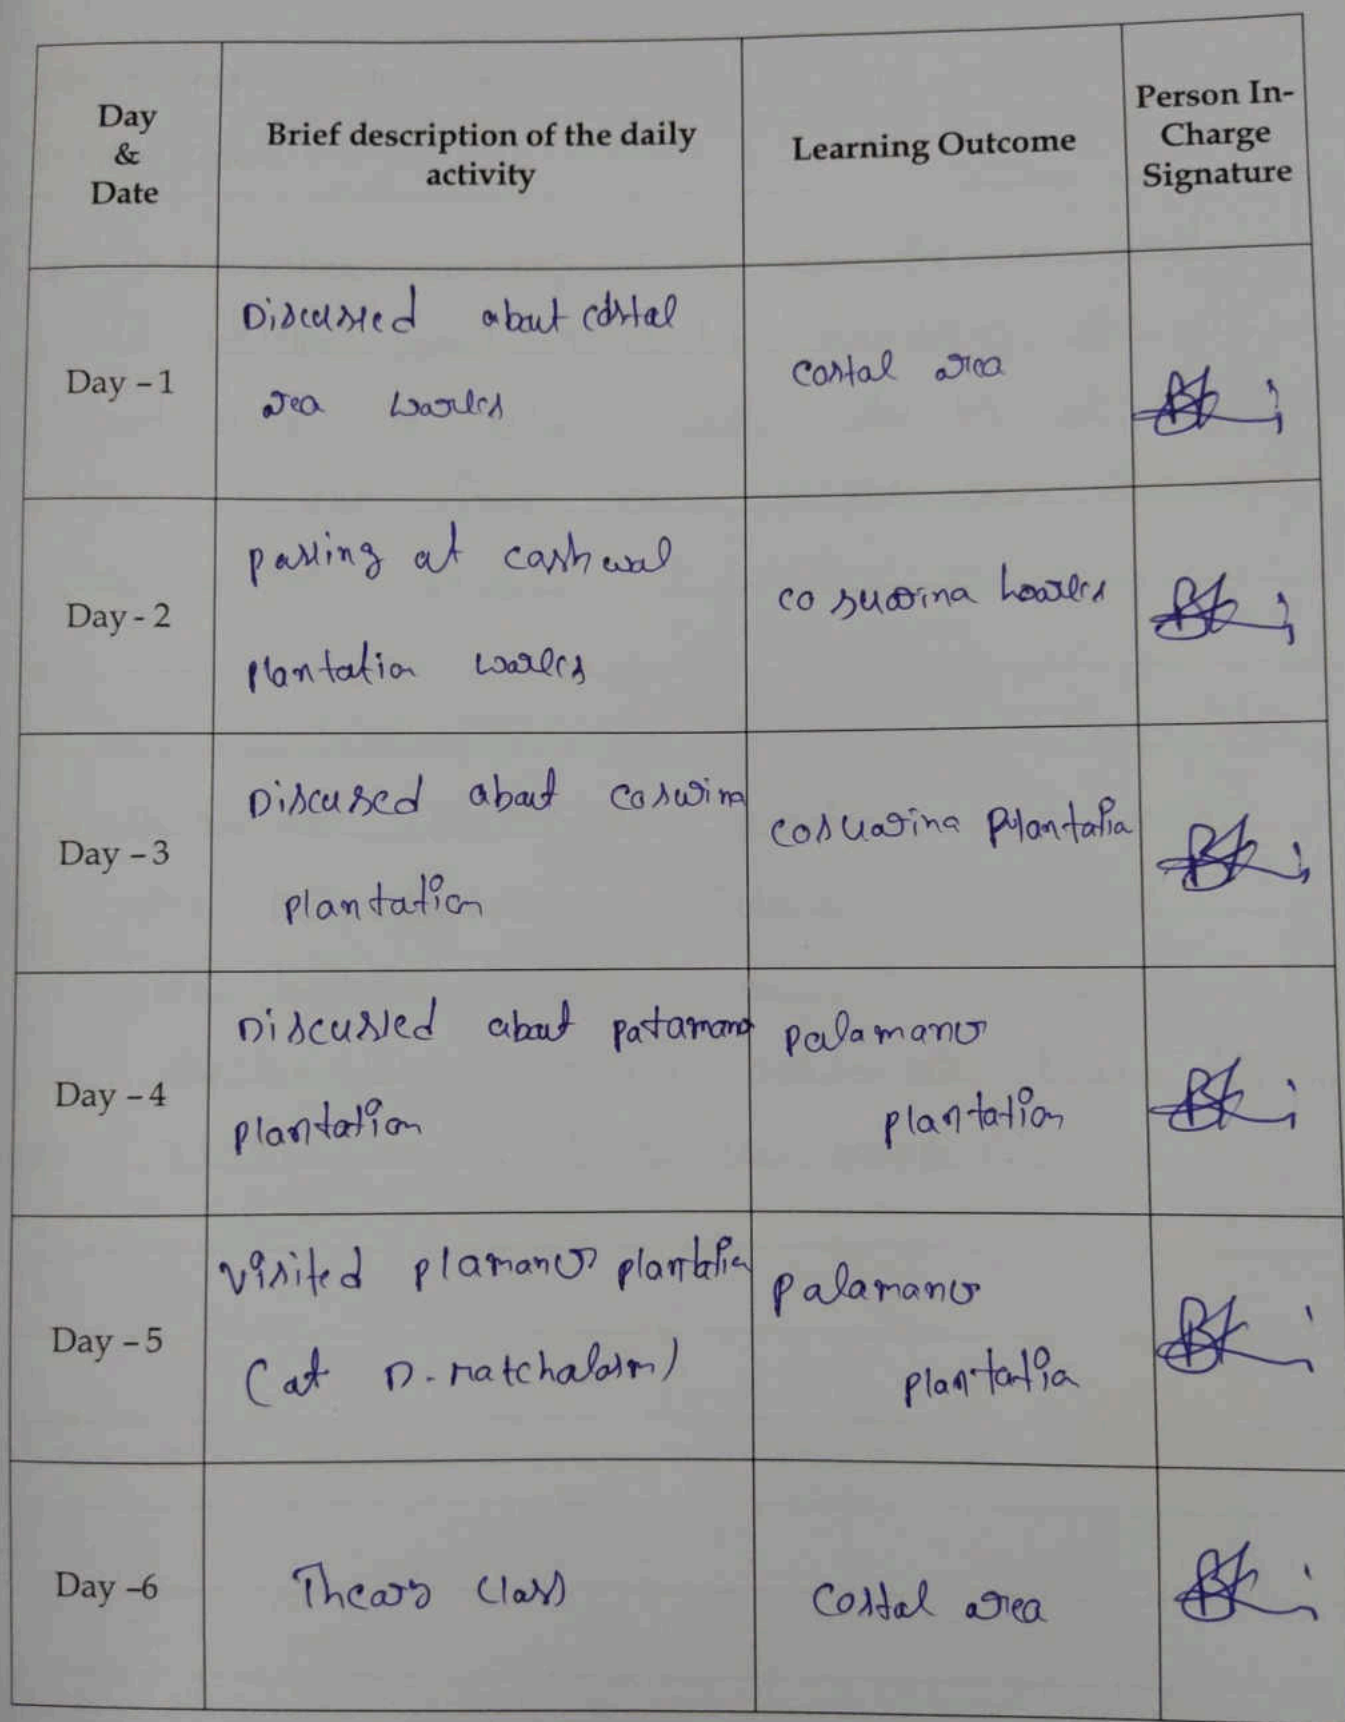 Day
&
Date
Brief description of the daily
activity
Learning Outcome
Person In-
Charge
Signature
Day – 1
Discussed about costal
area works
costal area
Day - 2
at
plantation works
cosuarina works
Day – 3
Discused about
plantation
cosuarina
Day – 4
Discussed about
plantation
palamanur
plantation
Day – 5
visited plamanur
(at
palamanur
Day –6
Theary class
Costal area